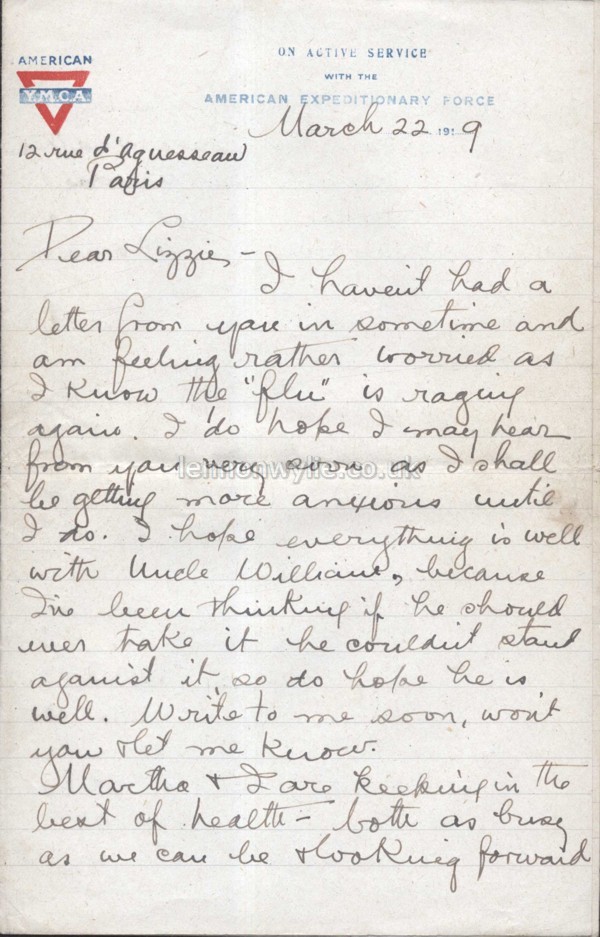 AMERICAN
Y.M.C.A.
ON ACTIVE SERVICE
WITH THE
AMERICAN EXPEDITIONARY FORCE
March 22 1919
12 rue d'Aguesseau
Paris
Dear Lizzie -
I haven't had a
letter from you in sometime and
am feeling rather worried as
I know the "flu" is raging
again. I do hope I may hear
from you very soon as I shall
be getting more anxious until
I do. I hope everything is well
with Uncle William, because
I've been thinking if he should
ever take it he couldn't stand
against it, so do hope he is
well. Write to me soon, won't
you & let me know.
Martha & I are keeping in the
best of health - both as busy
as we can be & looking forward
lennonwylie.co.uk